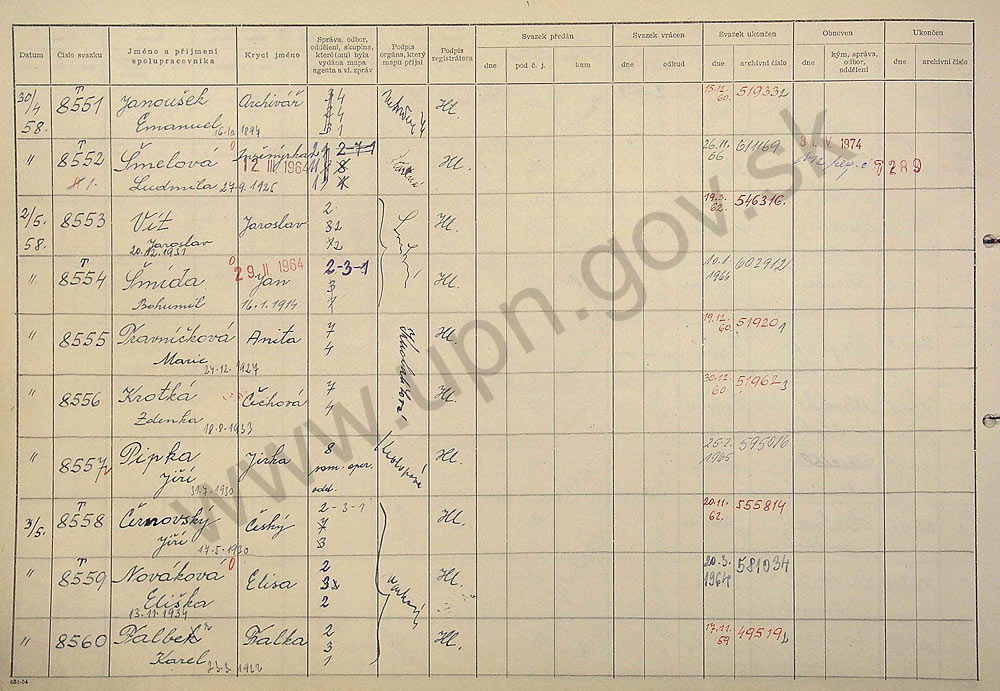 Datum
Číslo svazku
Jméno a příjmení spolupracovníka
Krycí jméno
Správa, odbor, oddělení, skupina, které(mu) byla vydána mapa agenta a vl. zpráv
Podpis orgána, který mapu přijal
Podpis registrátora
Svazek předán
dne
pod č. j.
kam
Svazek vrácen
dne
odkud
Svazek ukončen
dne
archivní číslo
Obnoven
dne
kým, správa, odbor, oddělení
Ukončen
dne
archivní číslo
30/4 58. T 8551 Janoušek Archivář 4 Hl. 15.12. 60. 519332
Emanuel 16.10.1894 4 1
" T 8552 Šmelová Inženýrka 2-7-1 Hl. 26.11. 66 611169 1974
Ludmila 27.9.1925 12. III. 1964 8 T 289
2/5. 58. 8553 Vít Jaroslav 2 Hl. 19.3. 62. 546316.
Jaroslav 20.12.1931 32
" T 8554 Šmída Jan 29. II. 1964 2-3-1 Hl. 10.1. 1966 602912
Bohumil 16.1.1914 3 1
" 8555 Travníčková Anita 7 Hl. 19.12. 60. 519201
Marie 24.12.1927 4
" 8556 Krotká Čechová 7 Hl. 30.12. 60 519623
Zdenka 18.8.1933 4
" 8557 Pipka Jirka 8 Hl. 25.2. 1965 595016
Jiří 31.7.1930 oper. odd.
3/5. T 8558 Černovský Český 2-3-1 Hl. 20.11. 62. 555814
Jiří 17.5.1930 7 3
" T 8559 Nováková Elisa 2 Hl. 20.3. 1964 581034
Eliška 13.11.1934 3 2
" 8560 Falbek Falka 2 Hl. 17.11. 59 495192
Karel 23.3.1922 3 1
635-54
www.upn.gov.sk